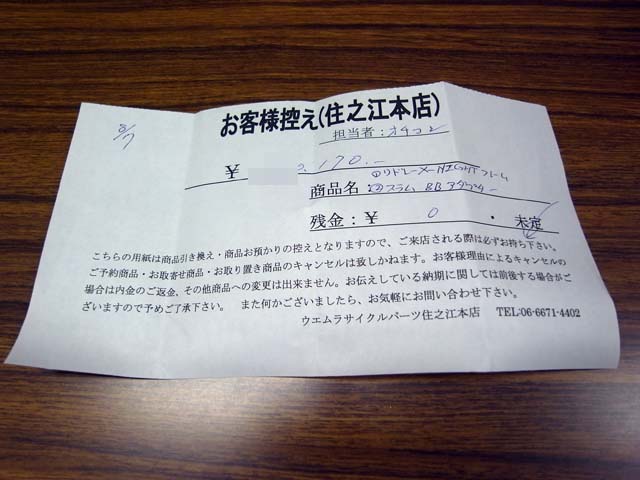 お客様控え(住之江本店)
8/7
担当者:オチコシ
¥ 170.-
①リドレーX-NIGHTフレーム
商品名:②スラム BBアダプター
残金:¥ 0 ・ 未定
こちらの用紙は商品引き換え・商品お預かりの控えとなりますので、ご来店される際は必ずお持ち下さい。
ご予約商品・お取寄せ商品・お取り置き商品のキャンセルは致しかねます。お客様理由によるキャンセルの
場合は内金のご返金、その他商品への変更は出来ません。お伝えしている納期に関しては前後する場合がご
ざいますので予めご了承下さい。 また何かございましたら、お気軽にお問い合わせ下さい。
ウエムラサイクルパーツ住之江本店 TEL:06-6671-4402